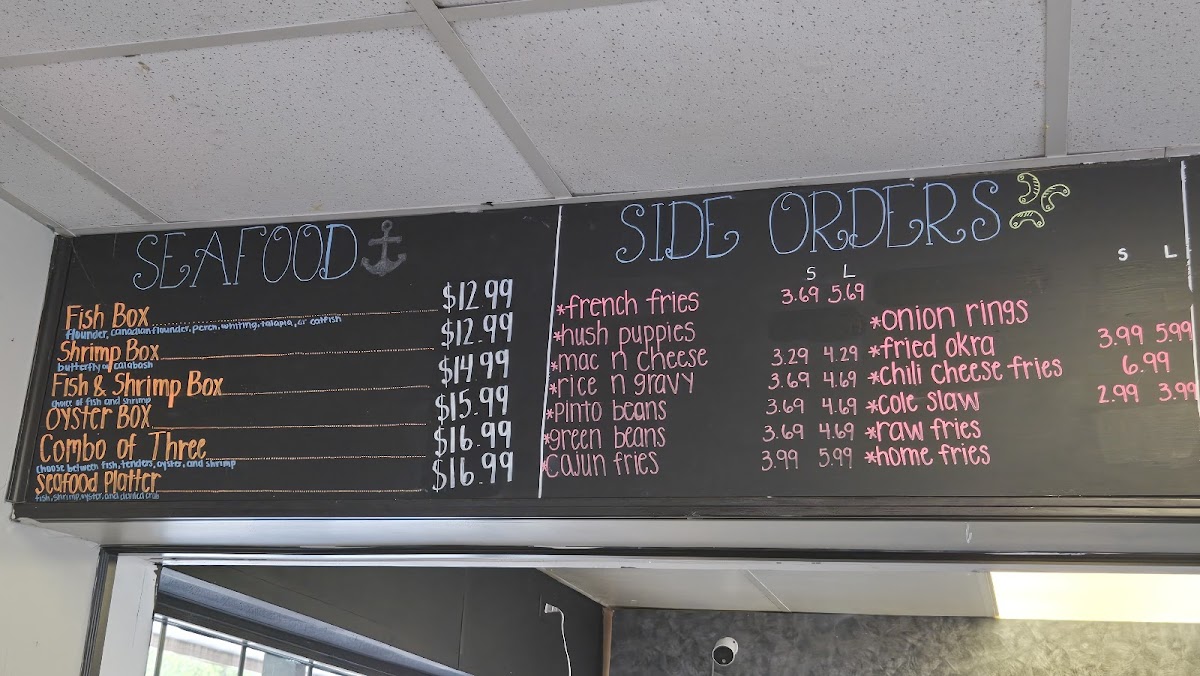 SEAFOOD
Fish Box $12.99
flounder, canadian flounder, perch, whiting, talapia, or catfish
Shrimp Box $12.99
butterfly or calabash
Fish & Shrimp Box $14.99
choice of fish and shrimp
Oyster Box $15.99
Combo of Three $16.99
choose between fish, tenders, oyster, and shrimp
Seafood Platter $16.99
fish, shrimp, oyster, and deviled crab
SIDE ORDERS
S L
*french fries 3.69 5.69
*hush puppies
*mac n cheese 3.29 4.29
*rice n gravy 3.69 4.69
*pinto beans 3.69 4.69
*green beans 3.69 4.69
*cajun fries 3.99 5.99
S L
*onion rings
*fried okra 3.99 5.99
*chili cheese fries 6.99
*cole slaw 2.99 3.99
*raw fries
*home fries